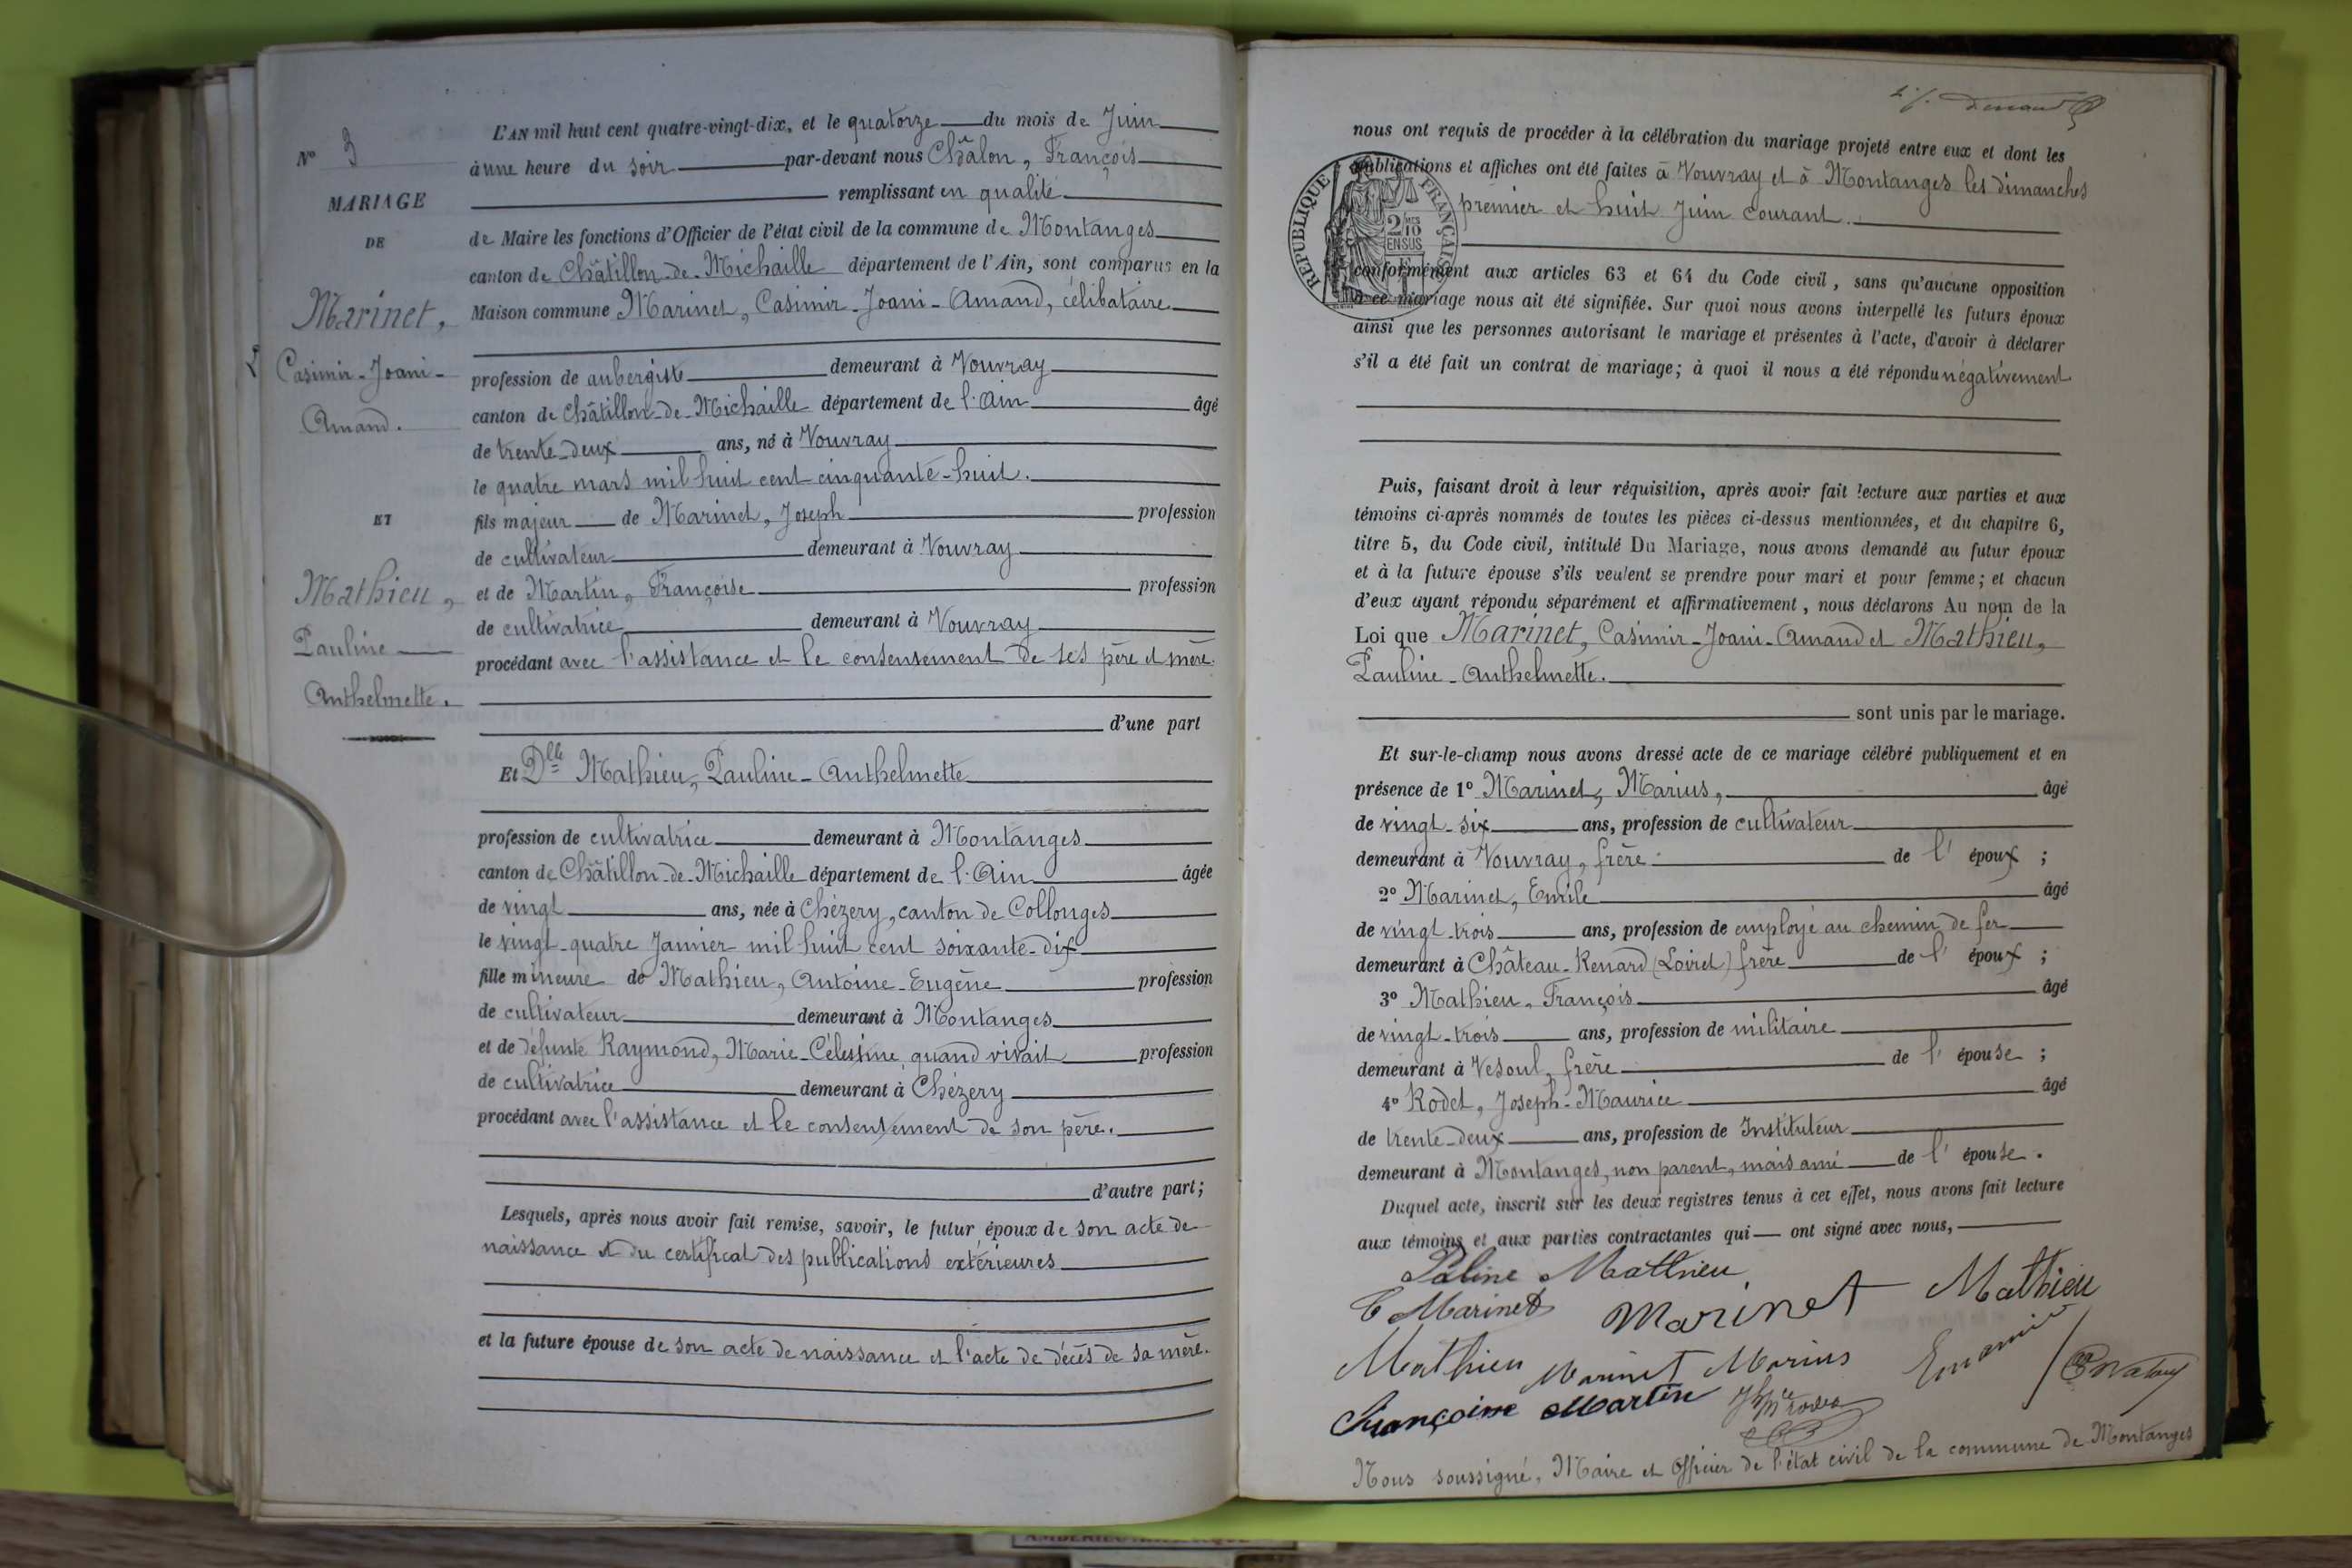 L'AN mil huit cent quatre-vingt-dix, et le quatorze du mois de Juin
N° 3
à une heure du soir par-devant nous Châlon, François
MARIAGE
remplissant en qualité
DE
de Maire les fonctions d'Officier de l'état civil de la commune de Montanges
canton de Châtillon-de-Michaille département de l'Ain, sont comparus en la
Marinet,
Maison commune Marinet, Casimir-Joani-Amand, célibataire
Casimir-Joani-
profession de aubergiste demeurant à Vouvray
Amand.
canton de Châtillon-de-Michaille département de l'Ain âgé
de trente-deux ans, né à Vouvray
le quatre mars mil huit cent cinquante-huit.
ET
fils majeur de Marinet, Joseph profession
de cultivateur demeurant à Vouvray
Mathieu,
et de Martin, Françoise profession
Pauline
de cultivatrice demeurant à Vouvray
procédant avec l'assistance et le consentement de ses père et mère.
Anthelmette.
d'une part
Et Dlle Mathieu, Pauline-Anthelmette
profession de cultivatrice demeurant à Montanges
canton de Châtillon-de-Michaille département de l'Ain âgée
de vingt ans, née à Chézery, canton de Collonges
le vingt-quatre Janvier mil huit cent soixante-dix
fille mineure de Mathieu, Antoine-Eugène profession
de cultivateur demeurant à Montanges
et de défunte Raymond, Marie-Célestine quand vivait profession
de cultivatrice demeurant à Chézery
procédant avec l'assistance et le consentement de son père.
d'autre part;
Lesquels, après nous avoir fait remise, savoir, le futur époux de son acte de
naissance et du certificat des publications extérieures
et la future épouse de son acte de naissance et l'acte de décès de sa mère.
nous ont requis de procéder à la célébration du mariage projeté entre eux et dont les
publications et affiches ont été faites à Vouvray et à Montanges les dimanches
premier et huit Juin courant.
REPUBLIQUE FRANÇAISE
2/10
EN SUS
conformément aux articles 63 et 64 du Code civil, sans qu'aucune opposition
à ce mariage nous ait été signifiée. Sur quoi nous avons interpellé les futurs époux
ainsi que les personnes autorisant le mariage et présentes à l'acte, d'avoir à déclarer
s'il a été fait un contrat de mariage; à quoi il nous a été répondu négativement
Puis, faisant droit à leur réquisition, après avoir fait lecture aux parties et aux
témoins ci-après nommés de toutes les pièces ci-dessus mentionnées, et du chapitre 6,
titre 5, du Code civil, intitulé Du Mariage, nous avons demandé au futur époux
et à la future épouse s'ils veulent se prendre pour mari et pour femme; et chacun
d'eux ayant répondu séparément et affirmativement, nous déclarons Au nom de la
Loi que Marinet, Casimir-Joani-Amand et Mathieu,
Pauline-Anthelmette.
sont unis par le mariage.
Et sur-le-champ nous avons dressé acte de ce mariage célébré publiquement et en
présence de 1° Marinet, Marius, âgé
de vingt-six ans, profession de cultivateur
demeurant à Vouvray, frère de l'époux;
2° Marinet, Emile âgé
de vingt-trois ans, profession de employé au chemin de fer
demeurant à Château-Renard (Loiret) frère de l'époux;
3° Mathieu, François âgé
de vingt-trois ans, profession de militaire
demeurant à Vesoul, frère de l'épouse;
4° Rodet, Joseph-Maurice âgé
de trente-deux ans, profession de Instituteur
demeurant à Montanges, non parent, mais ami de l'épouse.
Duquel acte, inscrit sur les deux registres tenus à cet effet, nous avons fait lecture
aux témoins et aux parties contractantes qui ont signé avec nous,
Paline Mathieu
C Marinet Marinet Mathieu
Mathieu Marinet Marius
Françoise Martin
Nous soussigné, Maire et Officier de l'état civil de la commune de Montanges